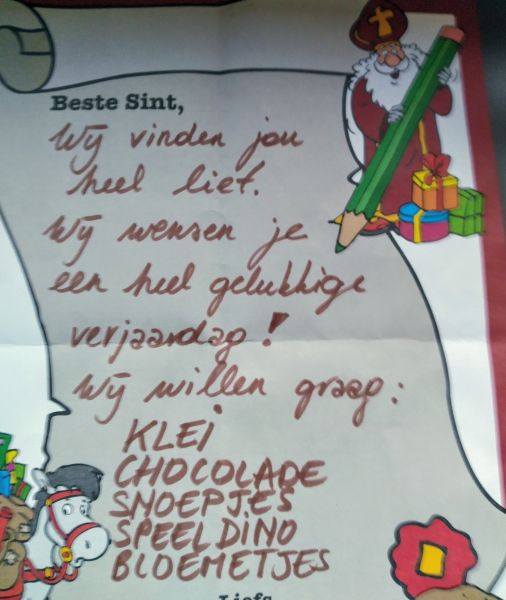 Beste Sint,
Wij vinden jou
heel lief.
Wij wensen je
een heel gelukkige
verjaardag!
Wij willen graag:
KLEI
CHOCOLADE
SNOEPJES
SPEELDINO
BLOEMETJES
Liefs